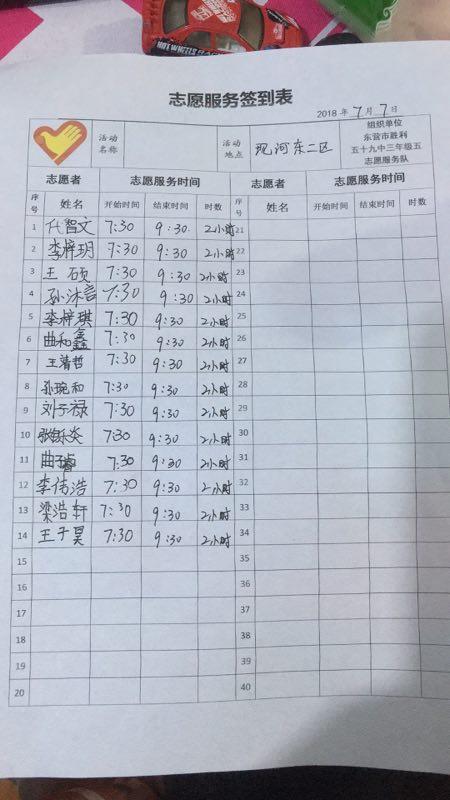 HOT WHEELS RACING
志愿服务签到表
2018 年 7 月 7 日
活动名称
活动地点
现河东二区
组织单位
东营市胜利
五十九中三年级五
志愿服务队
志愿者 志愿服务时间 志愿者 志愿服务时间
序号 姓名 开始时间 结束时间 时数 序号 姓名 开始时间 结束时间 时数
1 代智文 7:30 9:30 2小时 21
2 李梓玥 7:30 9:30 2小时 22
3 王硕 7:30 9:30 2小时 23
4 孙沐言 7:30 9:30 2小时 24
5 李梓琪 7:30 9:30 2小时 25
6 曲和鑫 7:30 9:30 2小时 26
7 王清哲 7:30 9:30 2小时 27
8 孙琬和 7:30 9:30 2小时 28
9 刘子禄 7:30 9:30 2小时 29
10 7:30 9:30 2小时 30
11 曲子睿 7:30 9:30 2小时 31
12 李伟浩 7:30 9:30 2小时 32
13 梁浩轩 7:30 9:30 2小时 33
14 王子昊 7:30 9:30 2小时 34
15 35
16 36
17 37
18 38
19 39
20 40